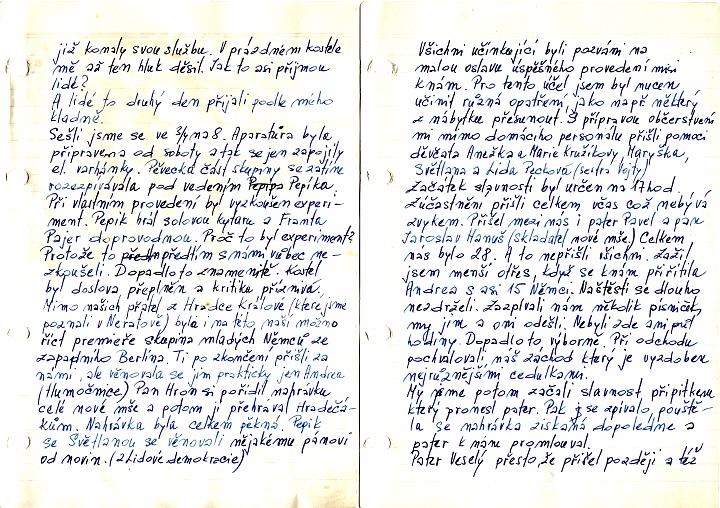 již konaly svou službu. V prázdném kostele
mě až ten hluk děsil. Jak to asi přijmou
lidé?
A lidé to druhý den přijali podle mého
kladně.
Sešli jsme se ve 3/4 na 8. Aparatura byla
připravena od soboty a tak se jen zapojily
el. varhánky. Pěvecká část skupiny se zatím
rozezpívávala pod vedením Pepíka.
Při vlastním provedení byl vyzkoušen experi-
ment. Pepík hrál solovou kytaru a Franta
Pajer doprovodnou. Proč to byl experiment?
Protože to předtím s námi vůbec ne-
zkoušeli. Dopadlo to znamenitě. Kostel
byl doslova přeplněn a kritika příznivá.
Mimo našich přátel z Hradce Králové (které jsme
poznali v Neratově) byla i na této naší možno
říct premieře skupina mladých Němců ze
západního Berlína. Ti po skončení přišli za
námi, ale věnovala se jim prakticky jen Andrea
(tlumočnice) Pan Hron si pořídil nahrávku
celé nové mše a potom ji přehrával Hradečá-
kům. Nahrávka byla celkem pěkná. Pepík
se Světlanou se věnovali nějakému pánovi
od novin. (z Lidové demokracie)
Všichni učinkující byli pozváni na
malou oslavu úspěšného provedení mši
k nám. Pro tento účel jsem byl nucen
učinit různá opatření, jako např některý
z nábytku přesunout. S přípravou občerstvení
mi mimo domácího personálu přišli pomoci
děvčata Anežka a Marie Kružíkovy, Maryška,
Světlana a Lída Pecková (sestra Vojty)
Začátek slavnosti byl určen na 17 hod.
Zúčastnění přišli celkem včas což nebývá
zvykem. Přišel mezi nás i pater Pavel a pan
Jaroslav Hanuš (skladatel nové mše.) Celkem
nás bylo 28. A to nepřišli všichni. Zažil
jsem menší otřes, když se k nám přiřítila
Andrea s asi 15 Němci. Naštěstí se dlouho
nezdrželi. Zazpívali nám několik písniček,
my jim a oni odešli. Nebyli zde ani půl
hodiny. Dopadlo to výborně. Při odchodu
pochvalovali náš záchod který je vyzdoben
nejrůznějšími cedulkami.
My jsme potom začali slavnost přípitkem
který pronesl pater. Pak se zpívalo, pouště-
la se nahrávka získaná dopoledne a
pater k nám promlouval.
Pater Veselý přesto, že přišel později a též